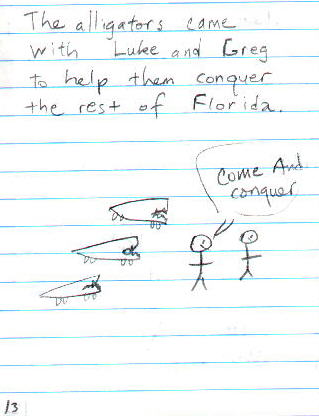 The alligators came
with Luke and Greg
to help them conquer
the rest of Florida.
Come And
conquer
13